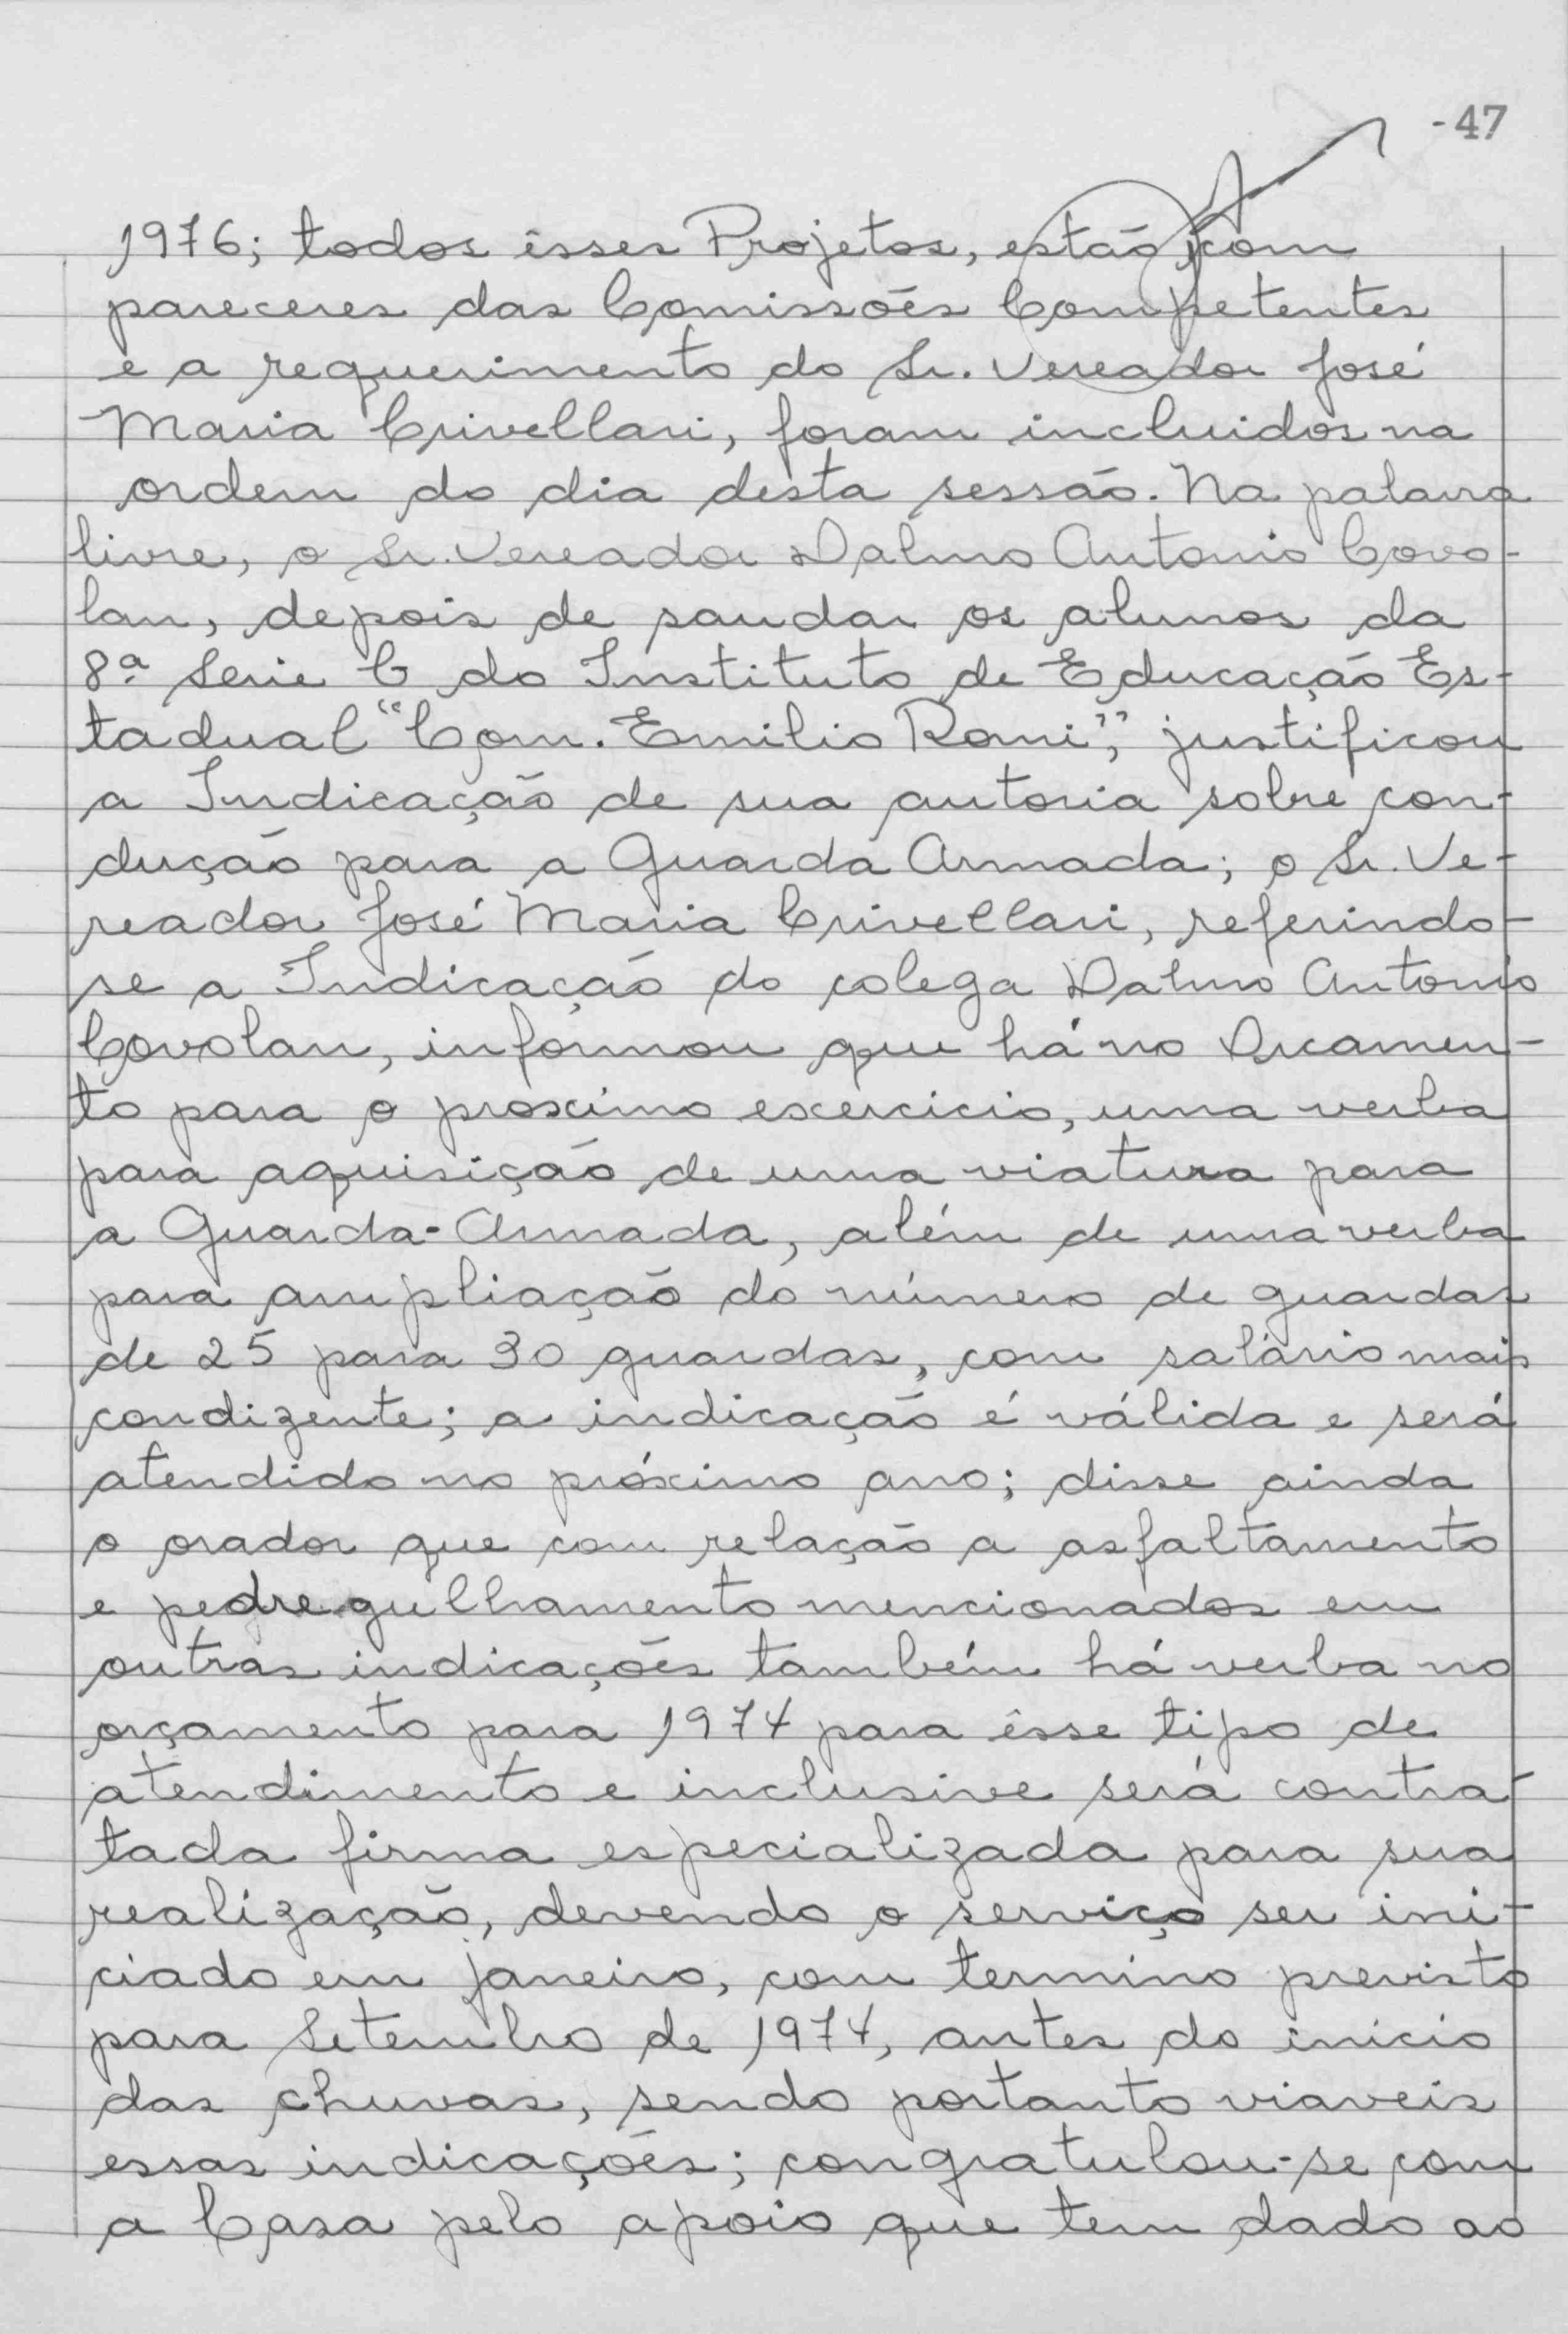 -47
1976; todos êsses Projetos, estão com
pareceres das Comissões Competentes
e a requerimento do Sr. Vereador José
Maria Crivellari, foram incluidos na
ordem do dia desta sessão. Na palavra
livre, o Sr. Vereador Dalmo Antonio Covo-
lan, depois de saudar os alunos da
8ª Serie C do Instituto de Educação Es-
tadual "Com. Emilio Romi", justificou
a Indicação de sua autoria sobre con-
dução para a Guarda Armada; o Sr. Ve-
reador José Maria Crivellari, referindo-
se a Indicação do colega Dalmo Antonio
Covolan, informou que há no Orcamen-
to para o proximo exercicio, uma verba
para aquisição de uma viatura para
a Guarda-Armada, além de uma verba
para ampliação do número de guardas
de 25 para 30 guardas, com salário mais
condizente; a indicação é válida e será
atendido no próximo ano; disse ainda
o orador que com relação a asfaltamento
e pedregulhamento mencionados em
outras indicações também há verba no
orçamento para 1974 para êsse tipo de
atendimento e inclusive será contra-
tada firma especializada para sua
realização, devendo o serviço ser ini-
ciado em janeiro, com termino previsto
para Setembro de 1974, antes do inicio
das chuvas, sendo portanto viaveis
essas indicações; congratulou-se com
a Casa pelo apoio que tem dado ao